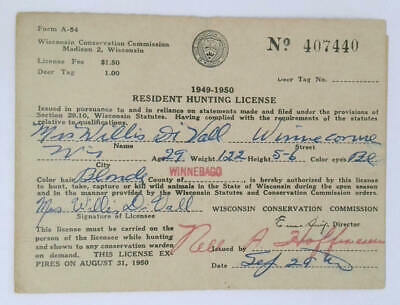 Form A-54
Wisconsin Conservation Commission
Madison 2, Wisconsin
License Fee $1.50
Deer Tag 1.00
Nº 407440
Deer Tag No.
1949-1950
RESIDENT HUNTING LICENSE
Issued in pursuance to and in reliance on statements made and filed under the provisions of
Section 29.10, Wisconsin Statutes. Having complied with the requirements of the statutes
relative to qualifications.
Mrs Willis Di Vall Winneconne
Name Street
Wis Age 29 Weight 122 Height 5-6 Color eyes
City WINNEBAGO
Color hair Blonde County of , is hereby authorized by this license
to hunt, take, capture or kill wild animals in the State of Wisconsin during the open season
and in the manner provided by the Wisconsin Statutes and Conservation Commission orders.
Mrs. Willis Di Vall WISCONSIN CONSERVATION COMMISSION
Signature of Licensee
Director
This license must be carried on the
person of the licensee while hunting
and shown to any conservation warden
on demand. THIS LICENSE EX-
PIRES ON AUGUST 31, 1950
Issued by Nell A Hoffmann
Date